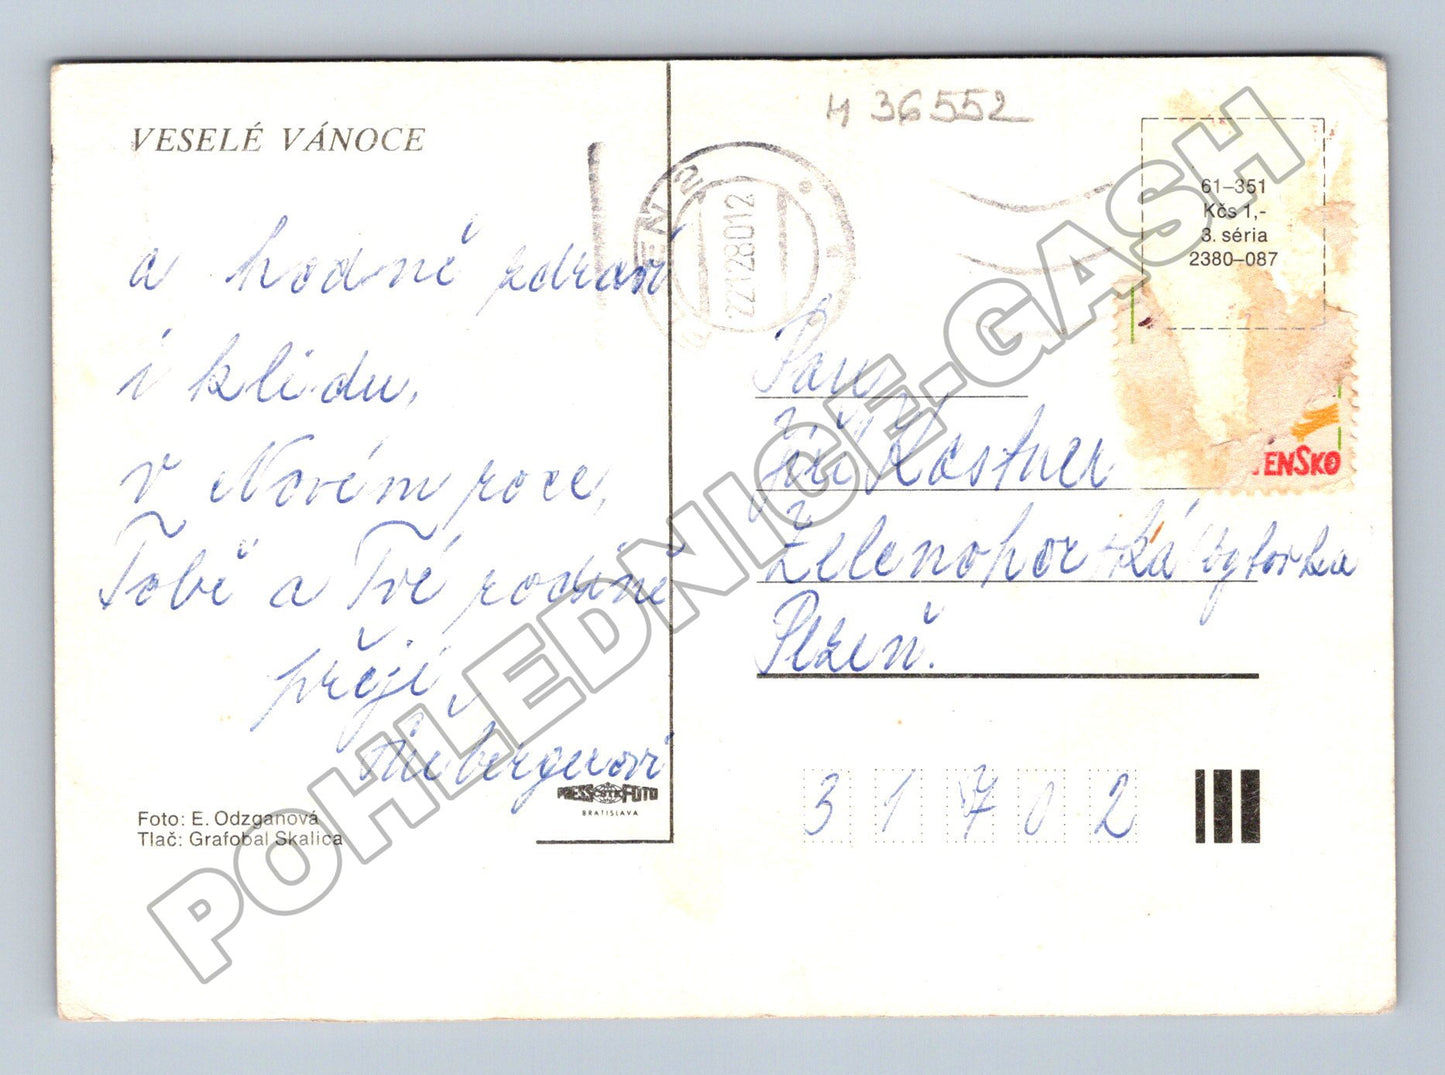 VESELÉ VÁNOCE
a hodně zdraví
i klidu,
v Novém roce,
Tobě a Tvé rodině
přejí
Foto: E. Odzganová
Tlač: Grafobal Skalica
PRESSFOTO
BRATISLAVA
36552
22.12.80 12
61–351
Kčs 1,-
3. séria
2380–087
ENSKO
Pan
Jiří Kastner
Zelenohorská
Plzeň.
31702
POHLEDNICE-GASH